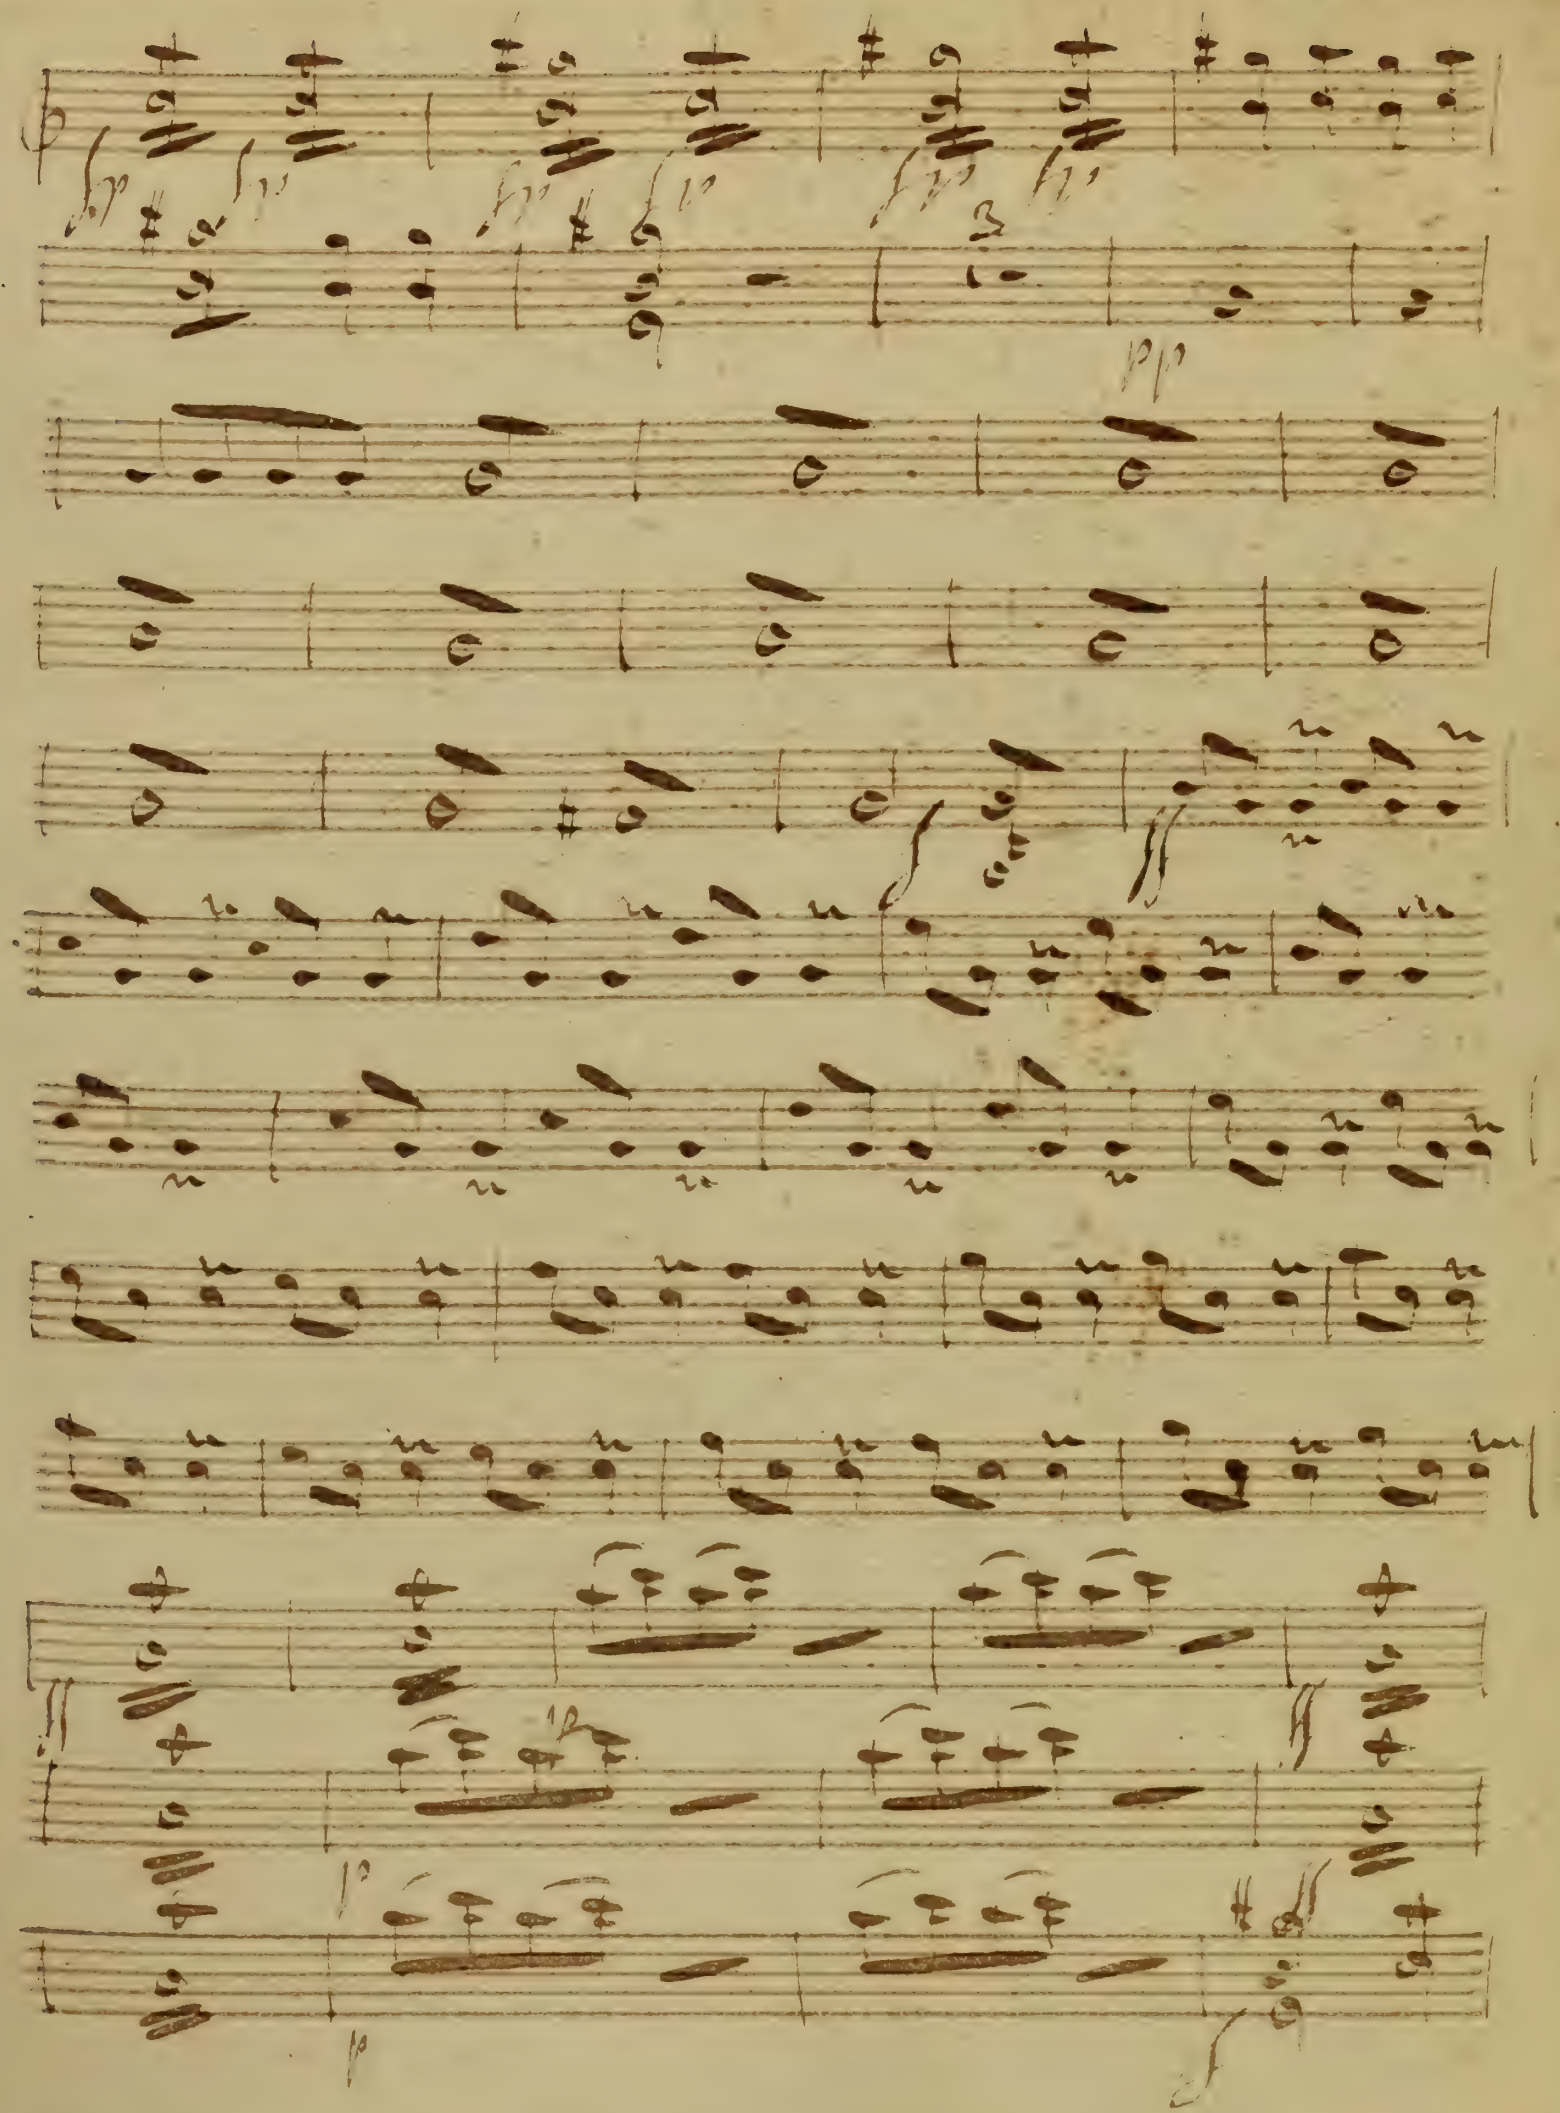 fp fp fp fp fp fp
3
pp
f ff
ff ff
12
p ff
p f